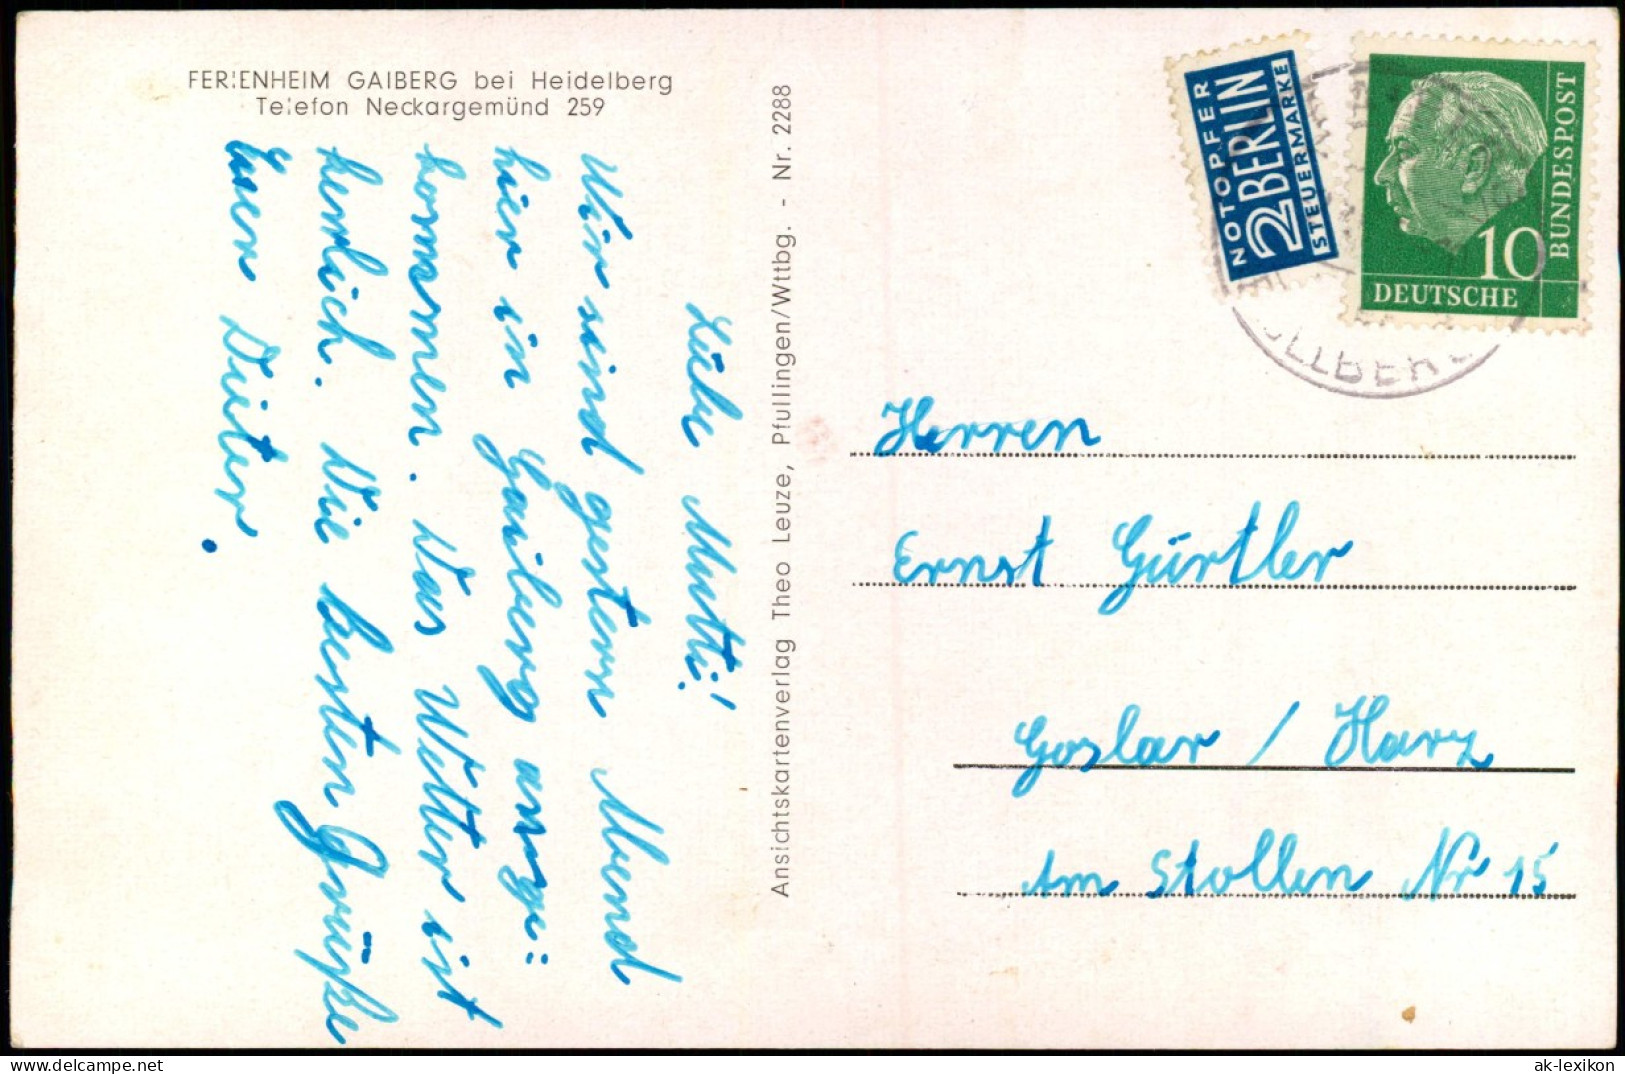 FERIENHEIM GAIBERG bei Heidelberg
Telefon Neckargemünd 259
Liebe Mutti!
Wir sind gestern Abend
hier in Gaiberg ange-
kommen. Das Wetter ist
herrlich. Die besten Grüße
Euer Dieter.
Ansichtskartenverlag Theo Leuze, Pfullingen/Wttbg. - Nr. 2288
NOTOPFER
2 BERLIN
STEUERMARKE
10
DEUTSCHE
BUNDESPOST
Herren
Ernst Gürtler
Goslar / Harz
Am Stollen Nr 15
ak-lexikon